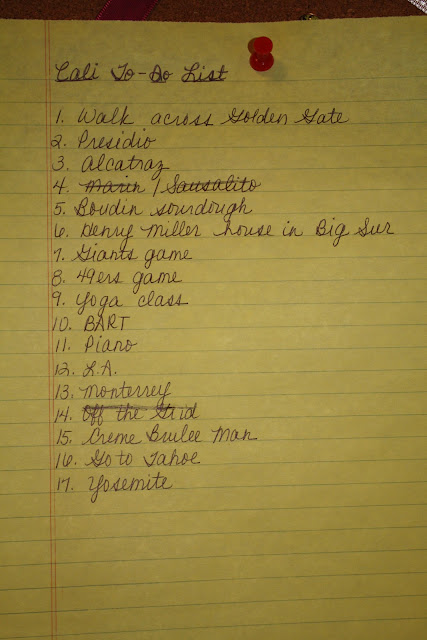 Cali To-Do List
1. Walk across Golden Gate
2. Presidio
3. Alcatraz
4. Marin / Sausalito
5. Boudin sourdough
6. Henry Miller house in Big Sur
7. Giants game
8. 49ers game
9. Yoga class
10. BART
11. Piano
12. L.A.
13. Monterrey
14. Off the Grid
15. Creme Brulee Man
16. Go to Tahoe
17. Yosemite